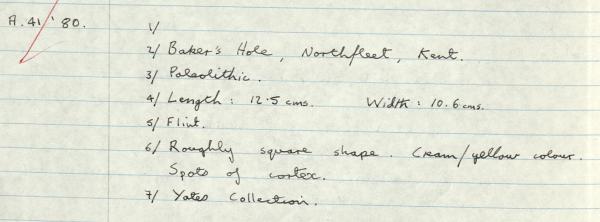 A.41'80. 1/
2/ Baker's Hole, Northfleet, Kent.
3/ Paleolithic.
4/ Length: 12.5 cms. Width: 10.6 cms.
5/ Flint.
6/ Roughly square shape. Cream/yellow colour.
Spots of cortex.
7/ Yates Collection.